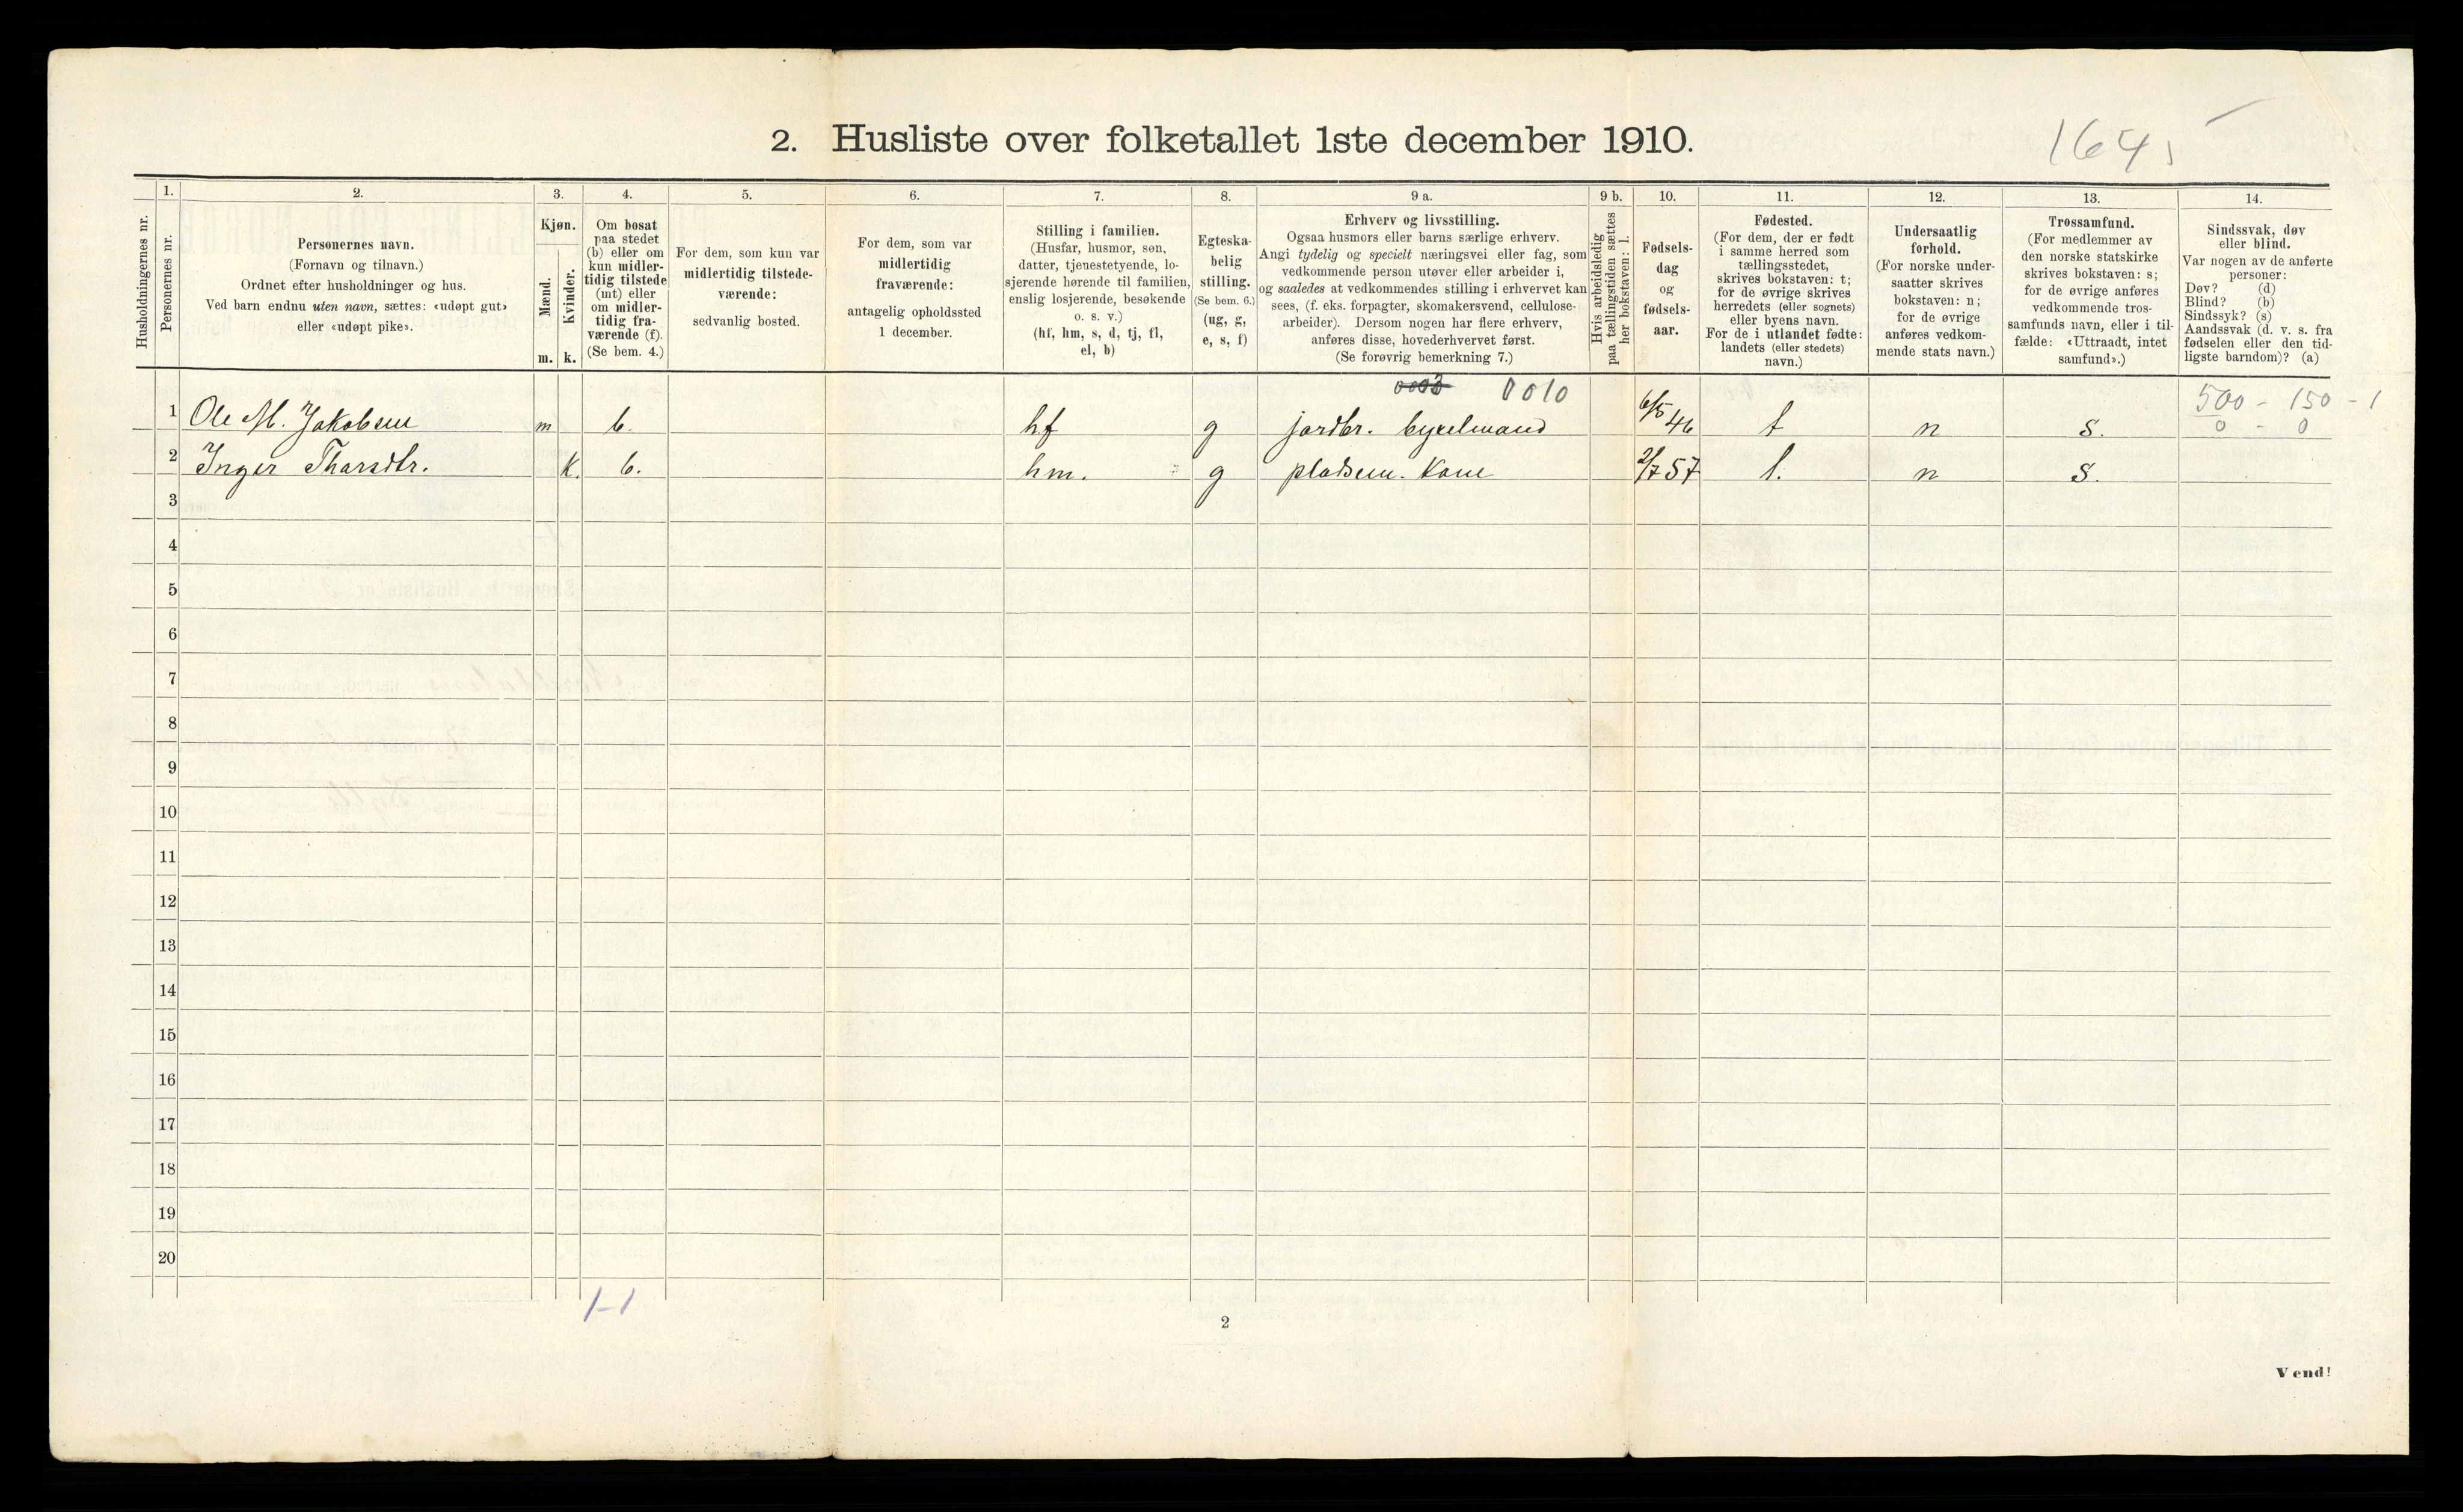 2. Husliste over folketallet 1ste december 1910.
1645
Husholdningernes nr.
1.
Personernes nr.
2.
Personernes navn.
(Fornavn og tilnavn.)
Ordnet efter husholdninger og hus.
Ved barn endnu uten navn, sættes: «udøpt gut»
eller «udøpt pike».
3.
Kjøn.
Mænd.
Kvinder.
m. k.
4.
Om bosat
paa stedet
(b) eller om
kun midler-
tidig tilstede
(mt) eller
om midler-
tidig fra-
værende (f).
(Se bem. 4.)
5.
For dem, som kun var
midlertidig tilstede-
værende:
sedvanlig bosted.
6.
For dem, som var
midlertidig
fraværende:
antagelig opholdssted
1 december.
7.
Stilling i familien.
(Husfar, husmor, søn,
datter, tjenestetyende, lo-
sjerende hørende til familien,
enslig losjerende, besøkende
o. s. v.)
(hf, hm, s, d, tj, fl,
el, b)
8.
Egteska-
belig
stilling.
(Se bem. 6.)
(ug, g,
e, s, f)
9 a.
Erhverv og livsstilling.
Ogsaa husmors eller barns særlige erhverv.
Angi tydelig og specielt næringsvei eller fag, som
vedkommende person utøver eller arbeider i,
og saaledes at vedkommendes stilling i erhvervet kan
sees, (f. eks. forpagter, skomakersvend, cellulose-
arbeider). Dersom nogen har flere erhverv,
anføres disse, hovederhvervet først.
(Se forøvrig bemerkning 7.)
9 b.
Hvis arbeidsledig
paa tællingstiden sættes
her bokstaven: l.
10.
Fødsels-
dag
og
fødsels-
aar.
11.
Fødested.
(For dem, der er født
i samme herred som
tællingsstedet,
skrives bokstaven: t;
for de øvrige skrives
herredets (eller sognets)
eller byens navn.
For de i utlandet fødte:
landets (eller stedets)
navn.)
12.
Undersaatlig
forhold.
(For norske under-
saatter skrives
bokstaven: n;
for de øvrige
anføres vedkom-
mende stats navn.)
13.
Trossamfund.
(For medlemmer av
den norske statskirke
skrives bokstaven: s;
for de øvrige anføres
vedkommende tros-
samfunds navn, eller i til-
fælde: «Uttraadt, intet
samfund».)
14.
Sindssvak, døv
eller blind.
Var nogen av de anførte
personer:
Døv? (d)
Blind? (b)
Sindssyk? (s)
Aandssvak (d. v. s. fra
fødselen eller den tid-
ligste barndom)? (a)
0003 0010
500 - 150 - 1
0 - 0
1 Ole M. Jakobsen m b. hf g jordbr. 6/5 46 t n s.
2 Inger Tharsdtr. k. b. hm. g pladsem. Kone 2/7 57 t. n s.
3
4
5
6
7
8
9
10
11
12
13
14
15
16
17
18
19
20
1-1
2
Vend!